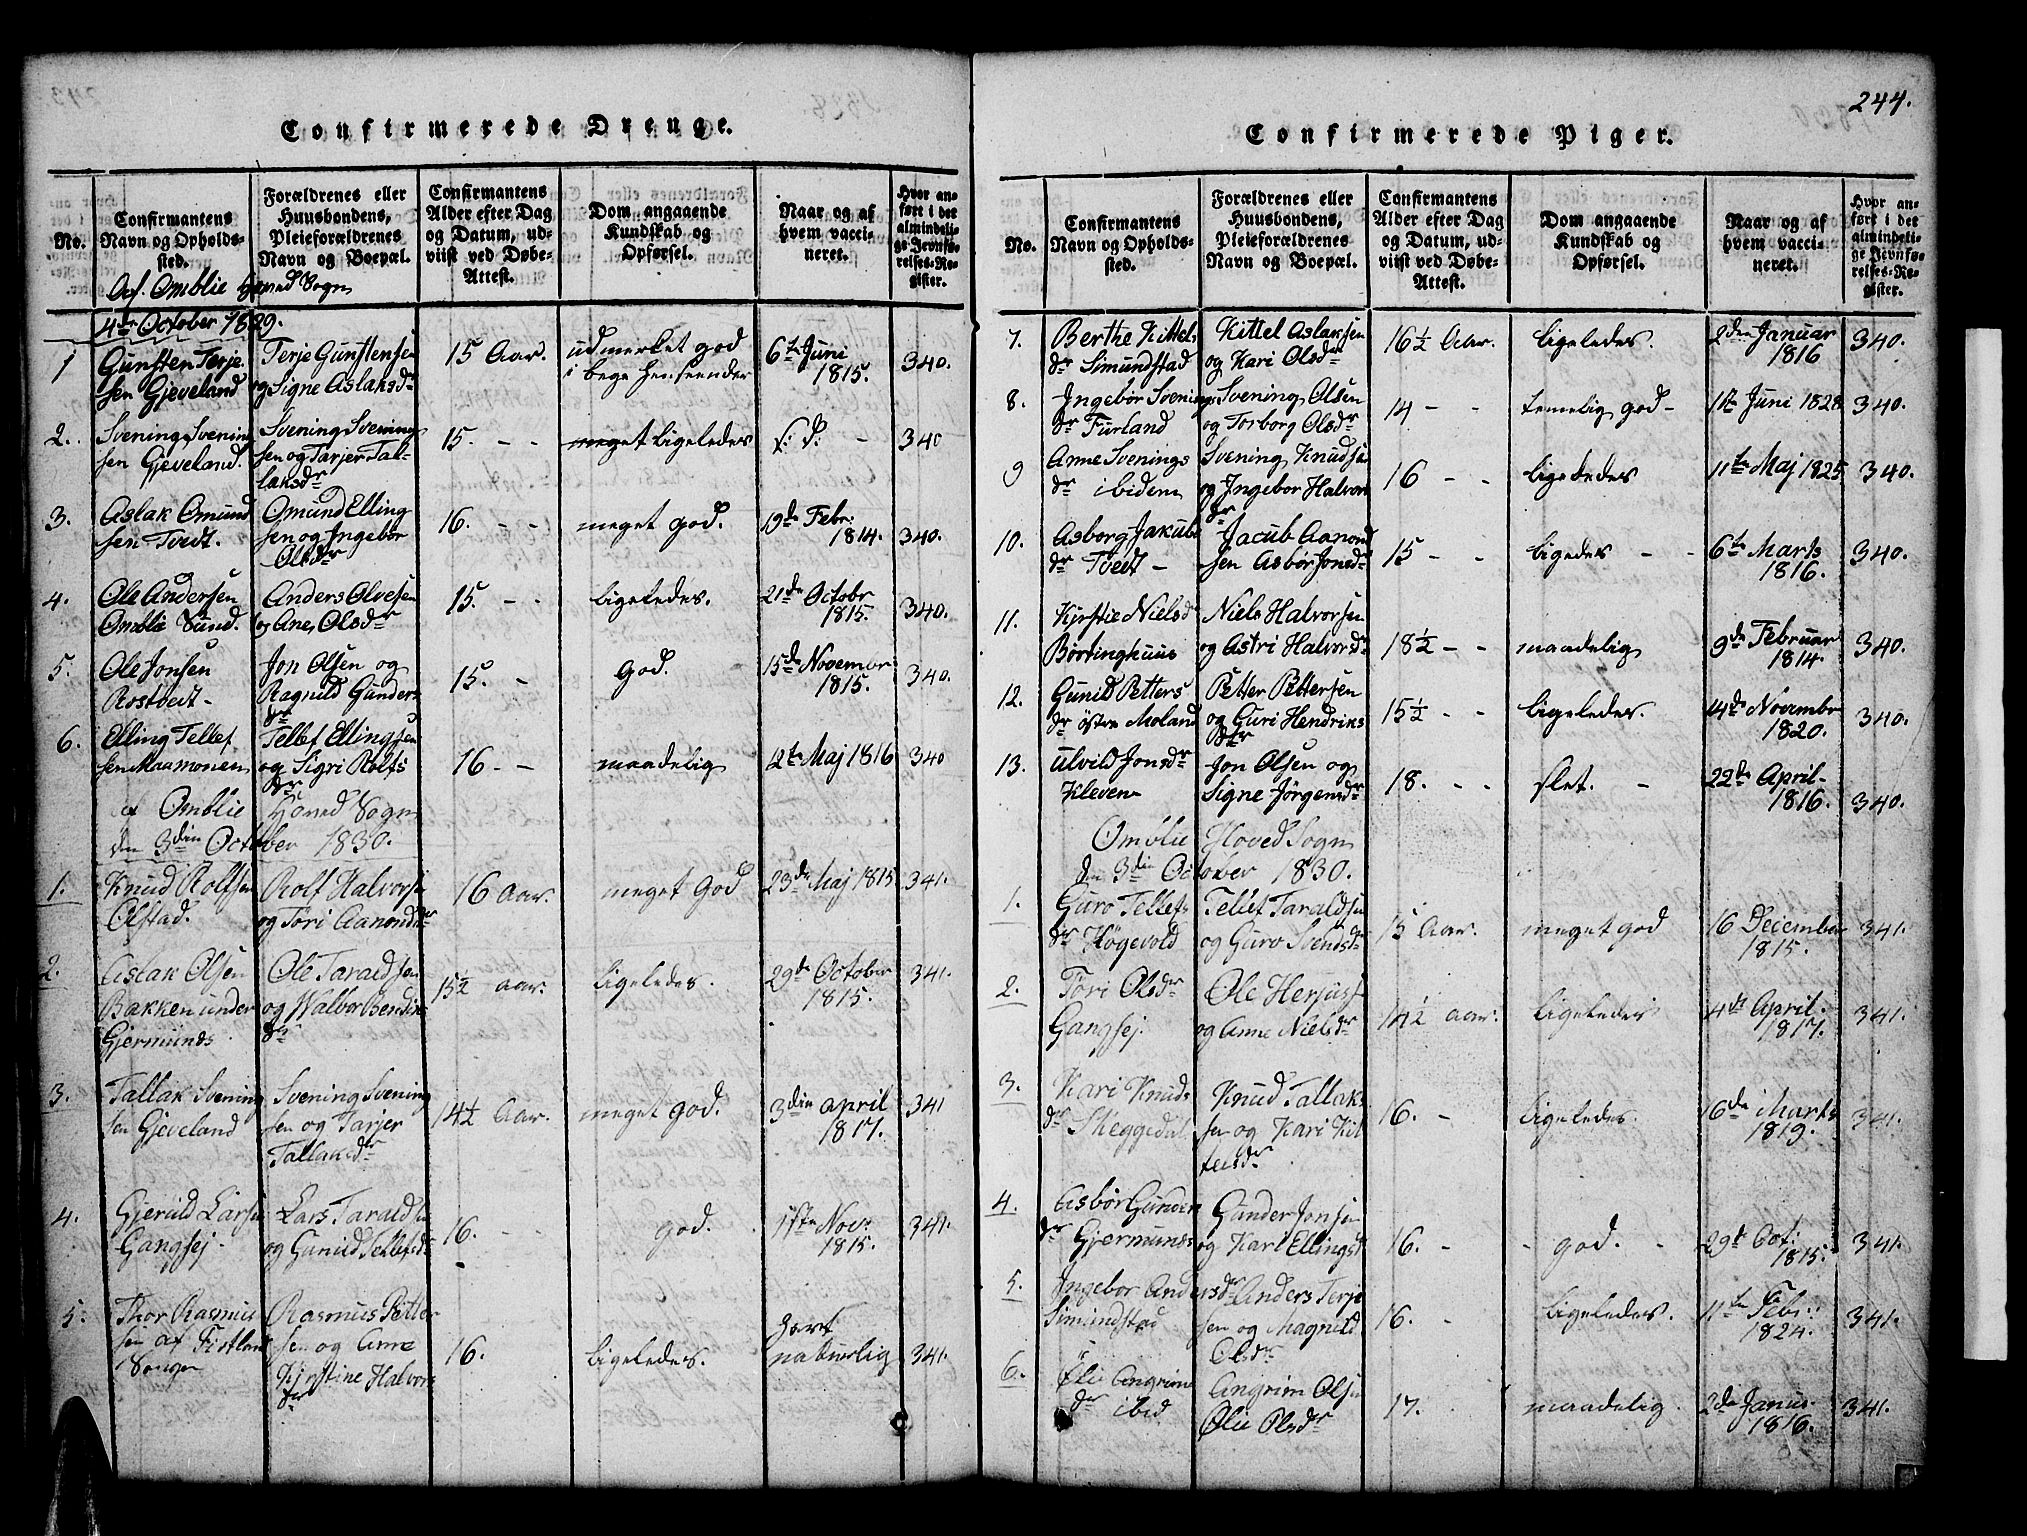 244.
Confirmerede Drenge.
No.
Confirmantens
Navn og Opholds-
sted.
Forældrenes eller
Huusbondens,
Pleieforældrenes
Navn og Boepæl.
Confirmantens
Alder efter Dag
og Datum, ud-
viist ved Døbe-
Attest.
Dom angaaende
Kundskab og
Opførsel.
Naar og af
hvem vacci-
neret.
Hvor an-
ført i det
almindeli-
ge Jevnfø-
relses-Re-
gister.
Af Omblie Hoved Sogn
4de October 1829.
1
Gunsten Terje
sen Gjeveland
Terje Gunstensen
og Signe Aslaksdr
15 Aar.
udmerket god
i bege Henseender
6te Juni
1815.
340.
2.
Svening Svening
sen Gjeveland.
Svening Svening
sen og Tarjer Tal-
laksdr
15. - -
meget ligeledes
340
3.
Aslak Omund
sen Tvedt.
Omund Elling
sen og Ingebor
Olsdr
16. - -
meget god.
19de Febr:
1814.
340.
4.
Ole Andersen
Omblie Sund.
Anders Olvesen
og Ane Olsdr
15. - -
ligeledes.
21de Octobr
1815.
340.
5.
Ole Jonsen
Rostvedt -
Jon Olsen og
Ragnild Gunders
dr
15. -
God.
15de Novemer
1815.
340.
6.
Elling Tellef
sen Maamonen
Tellef Ellingsen
og Sigri Rolfs
dr
16 - -
maadelig
12te Maj 1816
340
af Omblie Hoved Sogn
den 3din October 1830.
1.
Knud Rolfsen
Olstad.
Rolf Halvorsen
og Tori Aanondsdr
16 Aar.
meget God
23de Maj 1815
341.
2.
Aslak Olsen
Bakken under
Gjermunds
Ole Taraldsen
og Walbor Bendiks
dr
15½ Aar.
ligeledes.
29de October
1815.
341.
3.
Tallak Svening
sen Gjeveland
Svening Svening
sen og Tarjer
Tallaksdr
14½ Aar.
meget god.
3din April
1817.
341
4.
Gjeruld Larsen
Gangsej.
Lars Taraldsen
og Gunild Tellefsdr
16. - -
god.
1ste Novr
1815.
341.
5.
Thor Rasmus
sen af Fistlan
Rasmus Petter
sen og Anne
Kirstine Halvors
dr
16.
ligeledes.
havt
naturlig
341.
Confirmerede Piger.
No.
Confirmantens
Navn og Opholds-
sted.
Forældrenes eller
Huusbondens,
Pleieforældrenes
Navn og Boepæl.
Confirmantens
Alder efter Dag
og Datum, ud-
viist ved Døbe-
Attest.
Dom angaaende
Kundskab og
Opførsel.
Naar og af
hvem vacci-
neret.
Hvor an-
ført i det
almindeli-
ge Jevnfø-
relses-Re-
gister.
7.
Berthe Kittels
dr Simundstad
Kittel Aslaksen
og Kari Olsdr
16½ Aar.
ligeledes.
2den Januar
1816
340.
8.
Ingebør Svenings
dr Furland
Svening Olsen
og Torborg Olsdr
14 - -
temelig god -
Juni 1828
340.
9
Anne Svenings
dr ibidem
Svening Knudsen
og Ingebor Halvors
dr
16 - -
ligeledes
11te Maj 1825
340.
10.
Asborg Jakobs
dr Tvedt -
Jacob Aanond
sen Asbør Jonsdr
15 - -
ligedes - -
6te Marts
1816.
340.
11.
Kirstie Nielsdr
Børtinghuus
Niels Halvorsen
og Astri Halvorsdr
18½ - -
maadelig
9de Februar
1814.
340.
12.
Gunild Petters
dr østre Moland
Petter Pettersen
og Guri Hendriks
dtr
15½ - -
ligeledes.
14de Novembr
1820.
340.
13.
Ulvild Jonsdr
Kleven
Jon Olsen og
Signe Jørgensdr
18. - -
slet. -
22de April
1816.
340.
Omblie Hoved Sogn
den 3din October 1830.
1.
Guro Tellefs
dr Høgevold
Tellef Taraldsen
og Guro Svendsdr
15 Aar.
meget god
16 December
1815.
341.
2.
Tori Olsdr
Gangsej.
Ole Herjussen
og Anne Nielsdr
14½ Aar.
ligeledes
4de April
1817.
341.
3.
Kari Knuds
dr Skeggedal
Knud Tallak
sen og Kari Kit
telsdr
16. -
ligeledes.
16de Marts
1819.
341.
4.
Asbør Gunders
dr Gjermunds
Gunder Jonsen
og Kari Ellingsdr
16. -
- god. -
29de Oct:
1815.
341.
5.
Ingebor Andersdr
Simundstad
Anders Terje
sen og Magnild
Olsdr
16. -
ligeledes.
11te Febr:
1824.
341.
6.
Ølie Angrims
dr ibid
Angrim Olsen
Ølie Olsdr
17.
maadelig.
2de Januar
1816.
341.